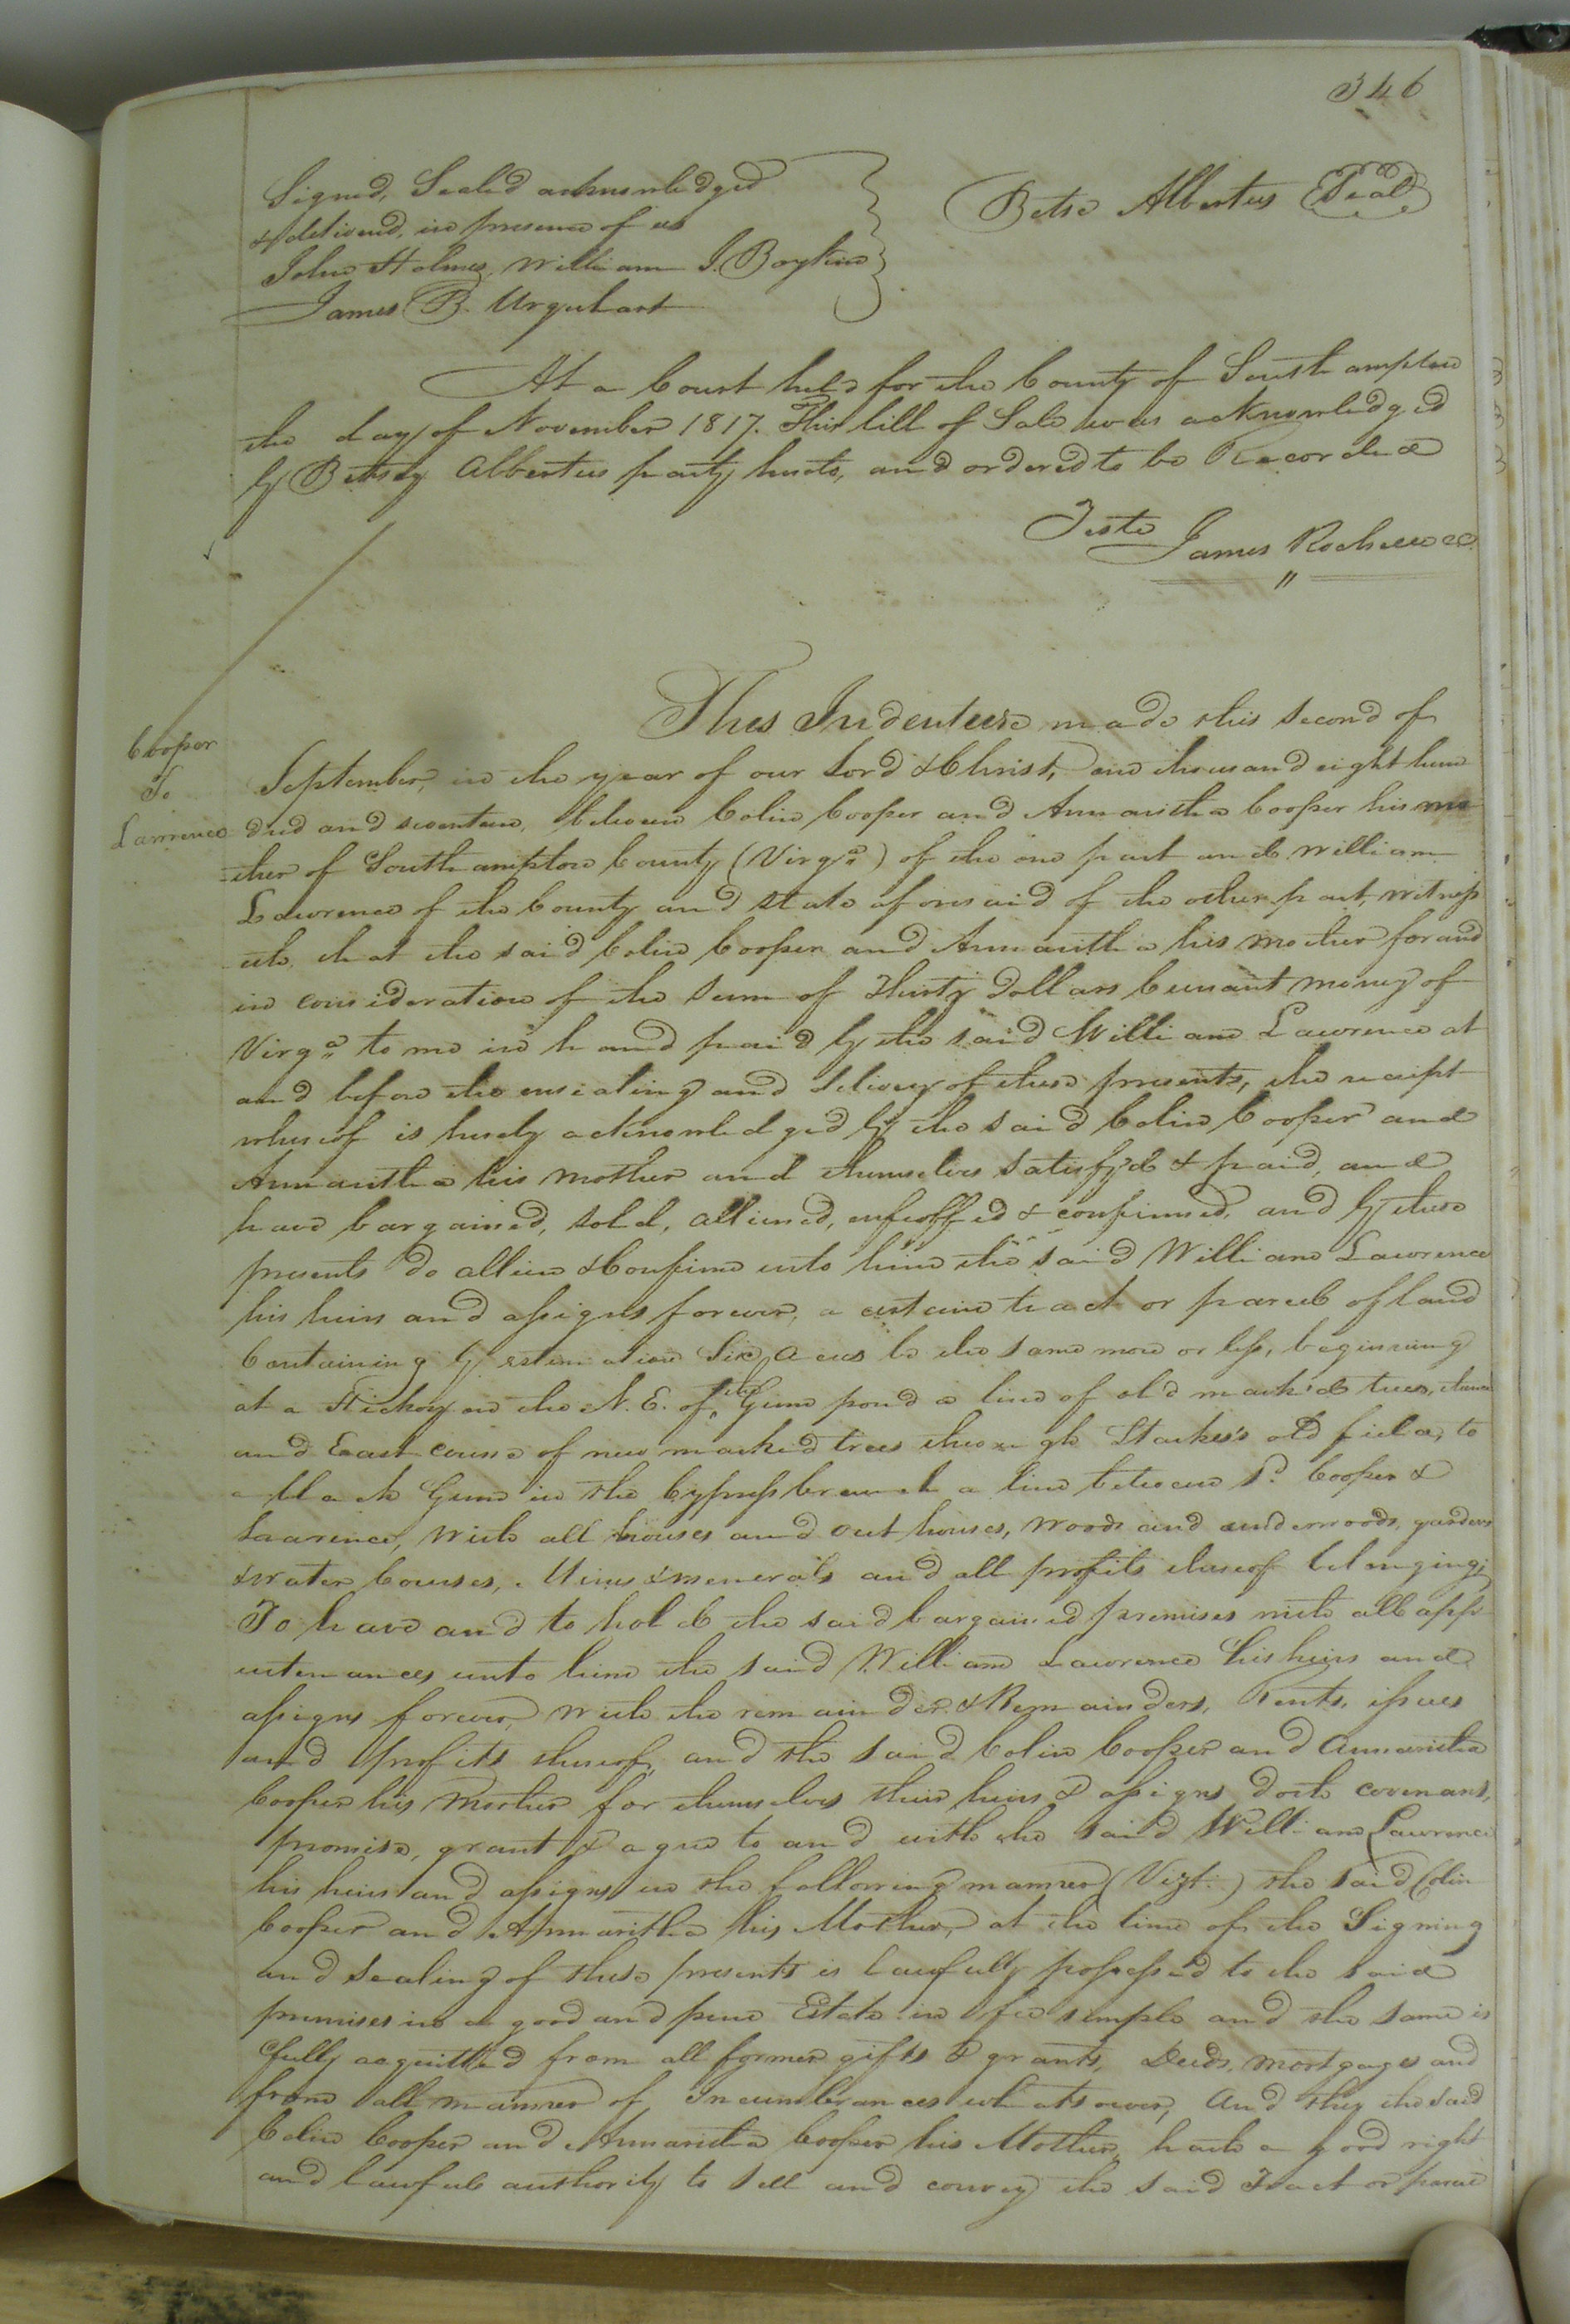 346
Signed, Sealed acknowledged
& deliverd, in presence of us
John Holmes, William J. Boykin
James B. Urquhart
Betse Albertus Seal
At a Court held for the County of Southampton
the day of November 1817. This bill of Sale was acknowledged
by Betsey Albertus party hereto, and ordered to be Recorded
Teste James Rochelle CC.
Cooper
To
Lawrence
This Indenture made this second of
September, in the year of our Lord & Christ, one thousand eight hun
dred and seventeen, between Colin Cooper and Annaritha Cooper his mo
ther of Southampton County (Virga) of the one part and William
Lawrence of the County and State aforesaid of the other part, witness
eth, that the said Colin Cooper and Annaritha his mother for and
in consideration of the sum of Thirty Dollars Currant money of
Virga to me in hand paid by the said William Lawrence at
and before the ensealing and delivery of these presents, the receipt
whereof is hereby acknowledged by the said Colin Cooper and
Annaritha his mother and themselves satisfy'd & paid, and
have bargained, sold, alliened, enfeoffed & confirmed, and by these
presents do allien & Confirm unto him the said William Lawrence
his heirs and assigns forever, a certain tract or parcel of land
Containing by estimation Six Acres be the same more or less, beginning
at a Hickory on the N. E. of the Gum pond a line of old mark'd trees, thence
and East course of new marked trees through Starkes's old field, to
a black Gum in the Cypress branch a line between P. Cooper &
Lawrence, With all houses and out houses, woods and underwoods, gardens
& water Courses, Mines & menerals and all profits thereof belonging;
To have and to hold the said bargained premises with all app-
urtenances unto him the said William Lawrence his heirs and
assigns forever, with the remainder & Remainders, Rents, issues
and profits thereof, and the said Colin Cooper and Annaritha
Cooper his Mother for themselves their heirs & assigns doth covenant,
promise, grant & agree to and with the said William Lawrence
his heirs and assigns in the following manner (Vizt.) the said Colin
Cooper and Annaritha his Mother, at the time of the Signing
and Sealing of these presents is lawfully possessed to the said
premises in a good and pure Estate in fee simple and the same is
fully acquitted from all former gifts & grants, Deeds, mortgages and
from all manner of Incumbrances whatsoever, And they the said
Colin Cooper and Annaritha Cooper his Mother, hath a good right
and lawful authority to sell and convey the said Tract or parcel